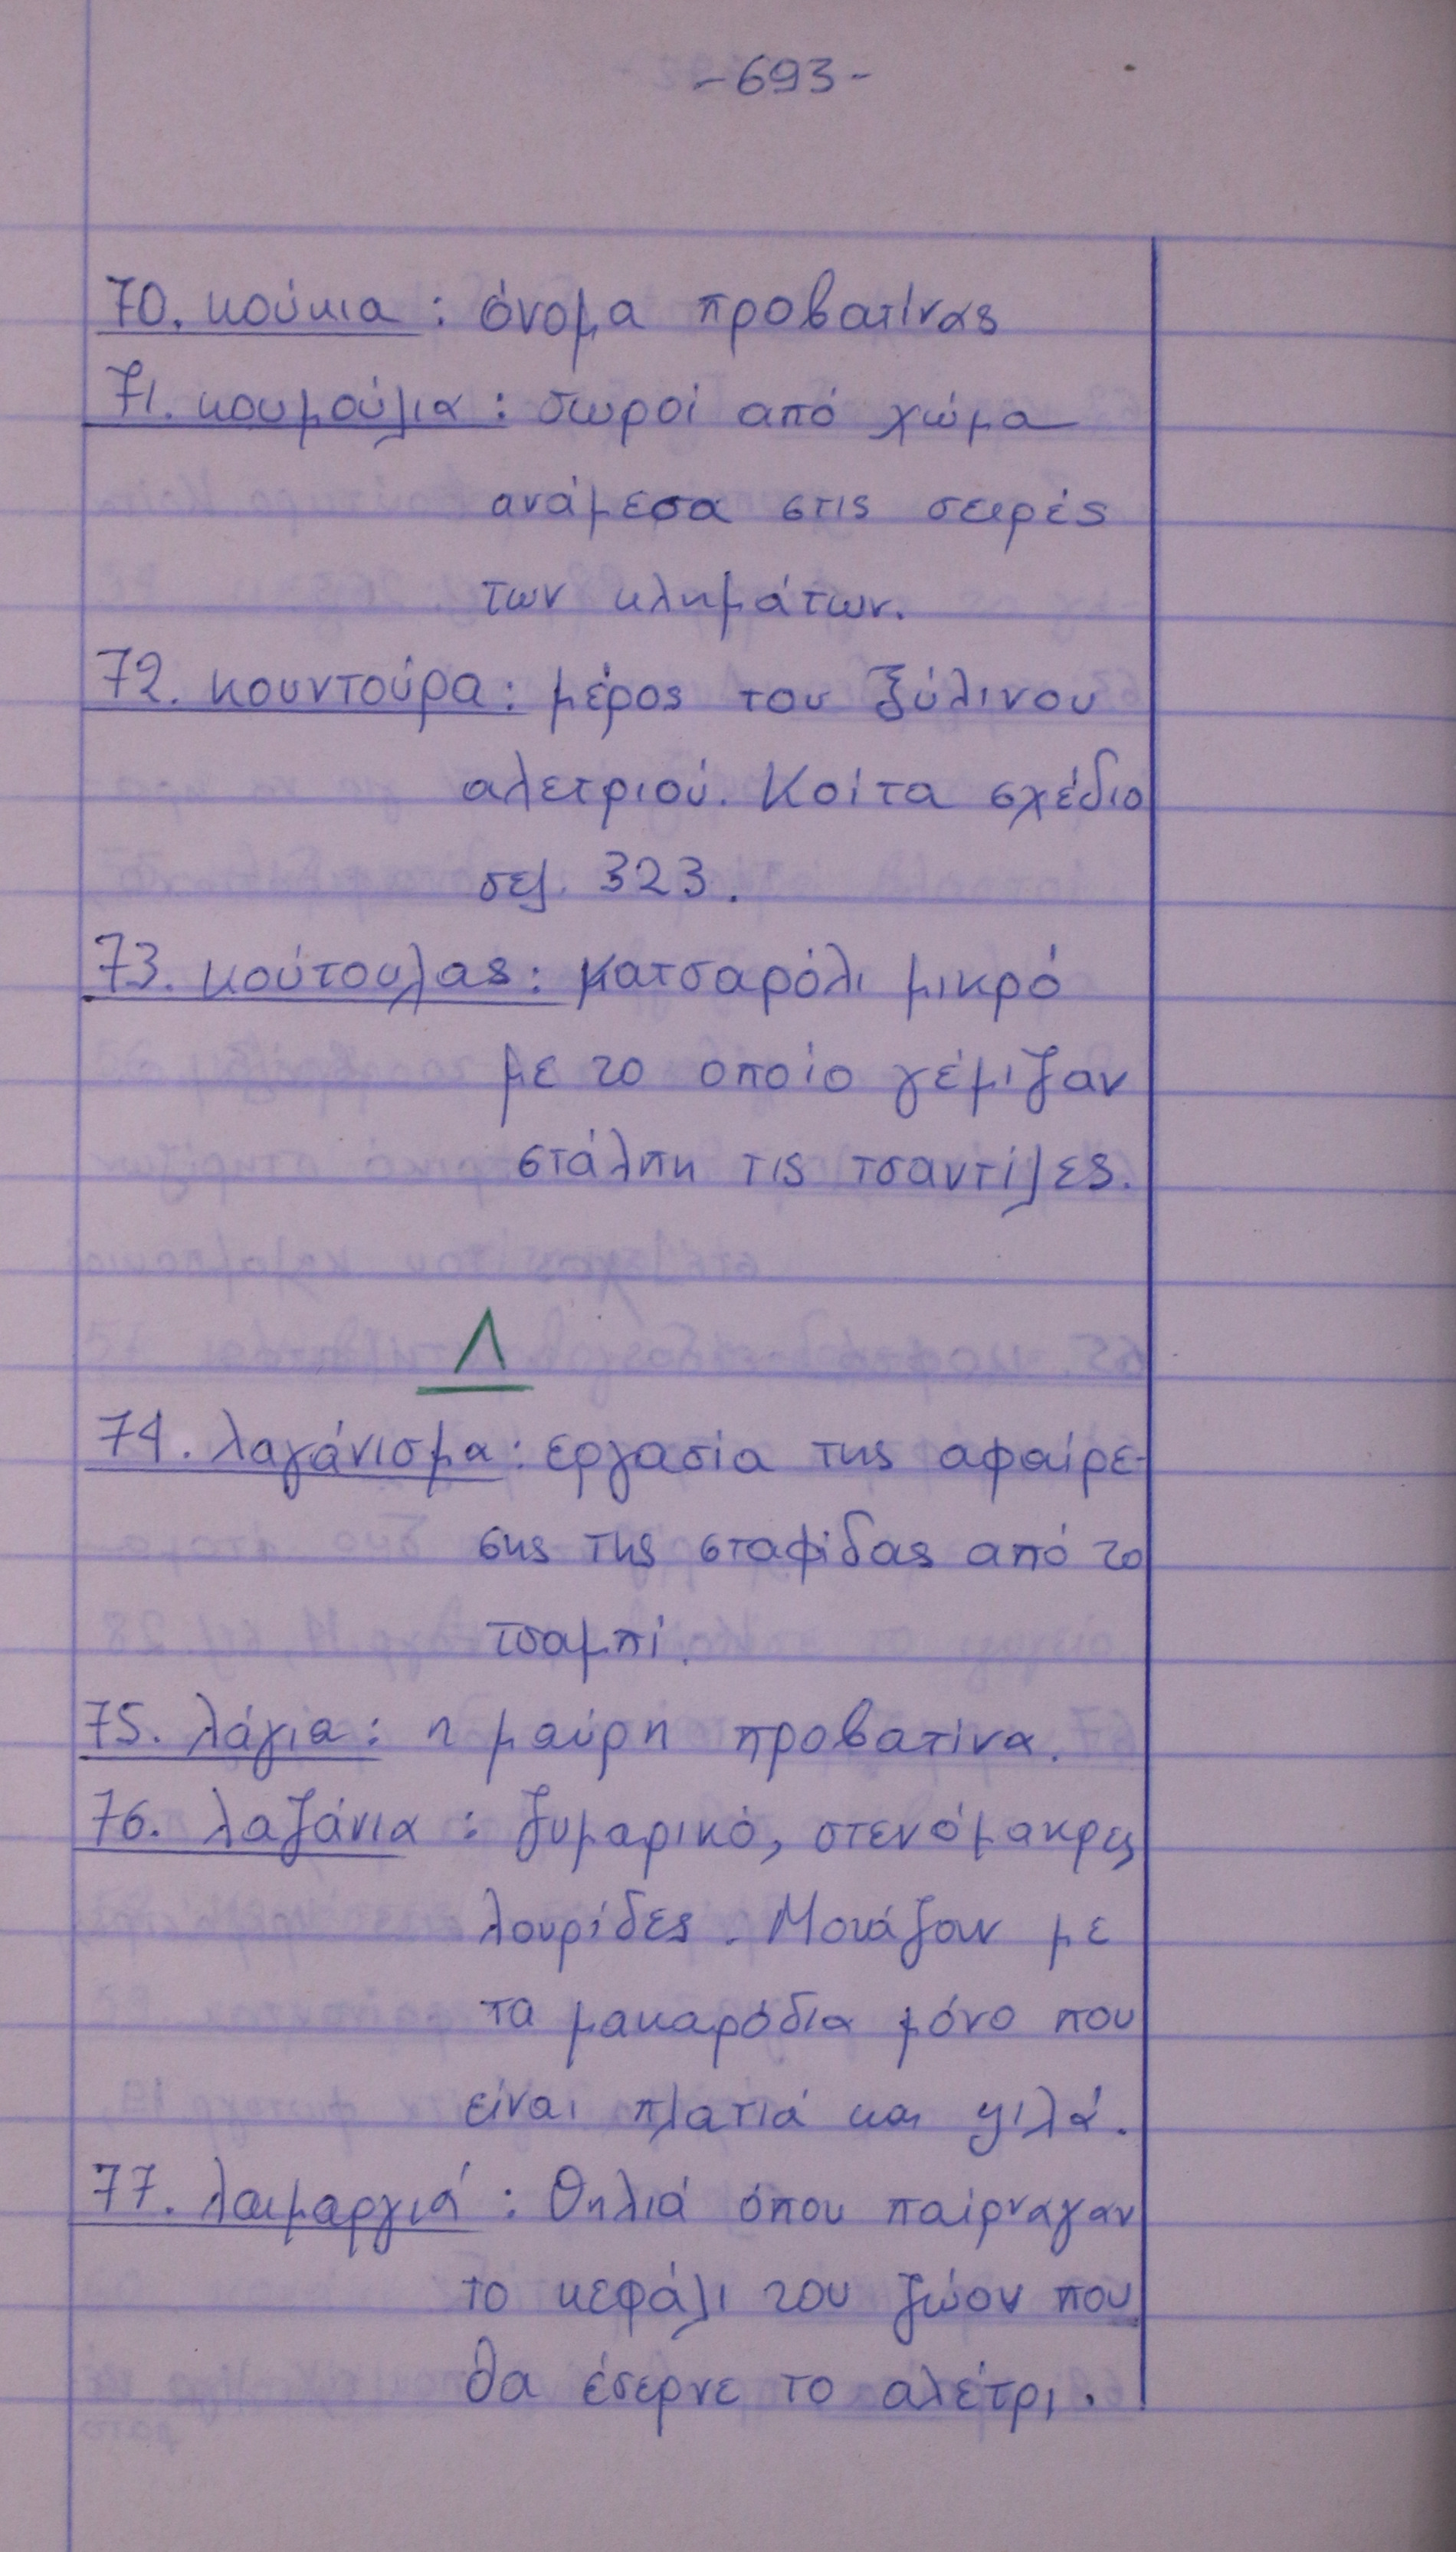 -693-
70. κούκια : όνομα προβατίνας
71. κουμούλια : σωροί από χώμα
ανάμεσα στις σειρές
των κλημάτων.
72. κουντούρα : μέρος του ξύλινου
αλετριού. Κοίτα σχέδιο
σελ. 323.
73. κούτουλας : κατσαρόλι μικρό
με το οποίο γέμιζαν
στάλπη τις τσαντίλες.
Λ
74. λαγάνισμα : εργασία της αφαίρε-
σης της σταφίδας από το
τσαμπί.
75. λάγια : η μαύρη προβατίνα.
76. λαζάνια : ζυμαρικό, στενόμακρες
λουρίδες. Μοιάζουν με
τα μακαρόδια μόνο που
είναι πλατιά και ψιλά.
77. λαιμαργιά : Θηλιά όπου παίρναγαν
το κεφάλι του ζώου που
θα έσερνε το αλέτρι.